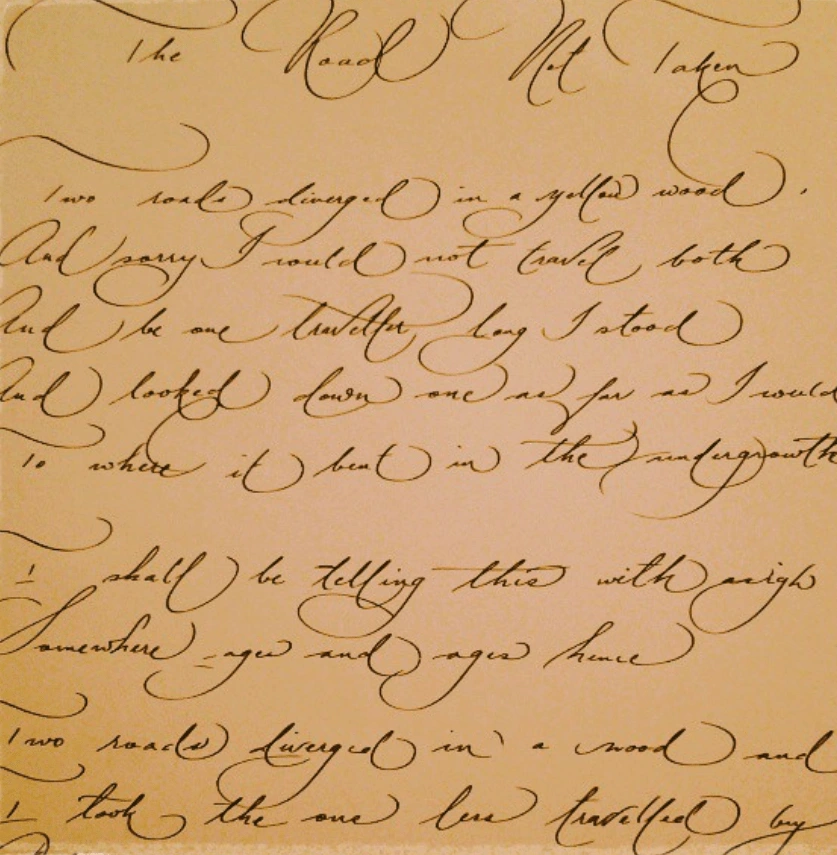 The Road Not Taken
Two roads diverged in a yellow wood,
And sorry I could not travel both
And be one traveller, long I stood
And looked down one as far as I could
To where it bent in the undergrowth
I shall be telling this with a sigh
Somewhere ages and ages hence
Two roads diverged in a wood and
I took the one less travelled by